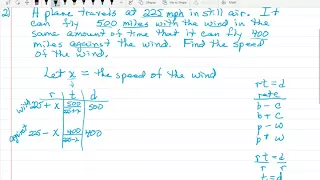 2) A plane travels at 225 mph in still air. It
can fly 500 miles with the wind in the
same amount of time that it can fly 400
miles against the wind. Find the speed
of the wind.
Let x = the speed of the wind
r t d
with 225 + x 500/225+x 500
against 225 - x 400/225-x 400
rt = d
rate
b - c
b + c
p - w
p + w
rt/r = d/r
t = d